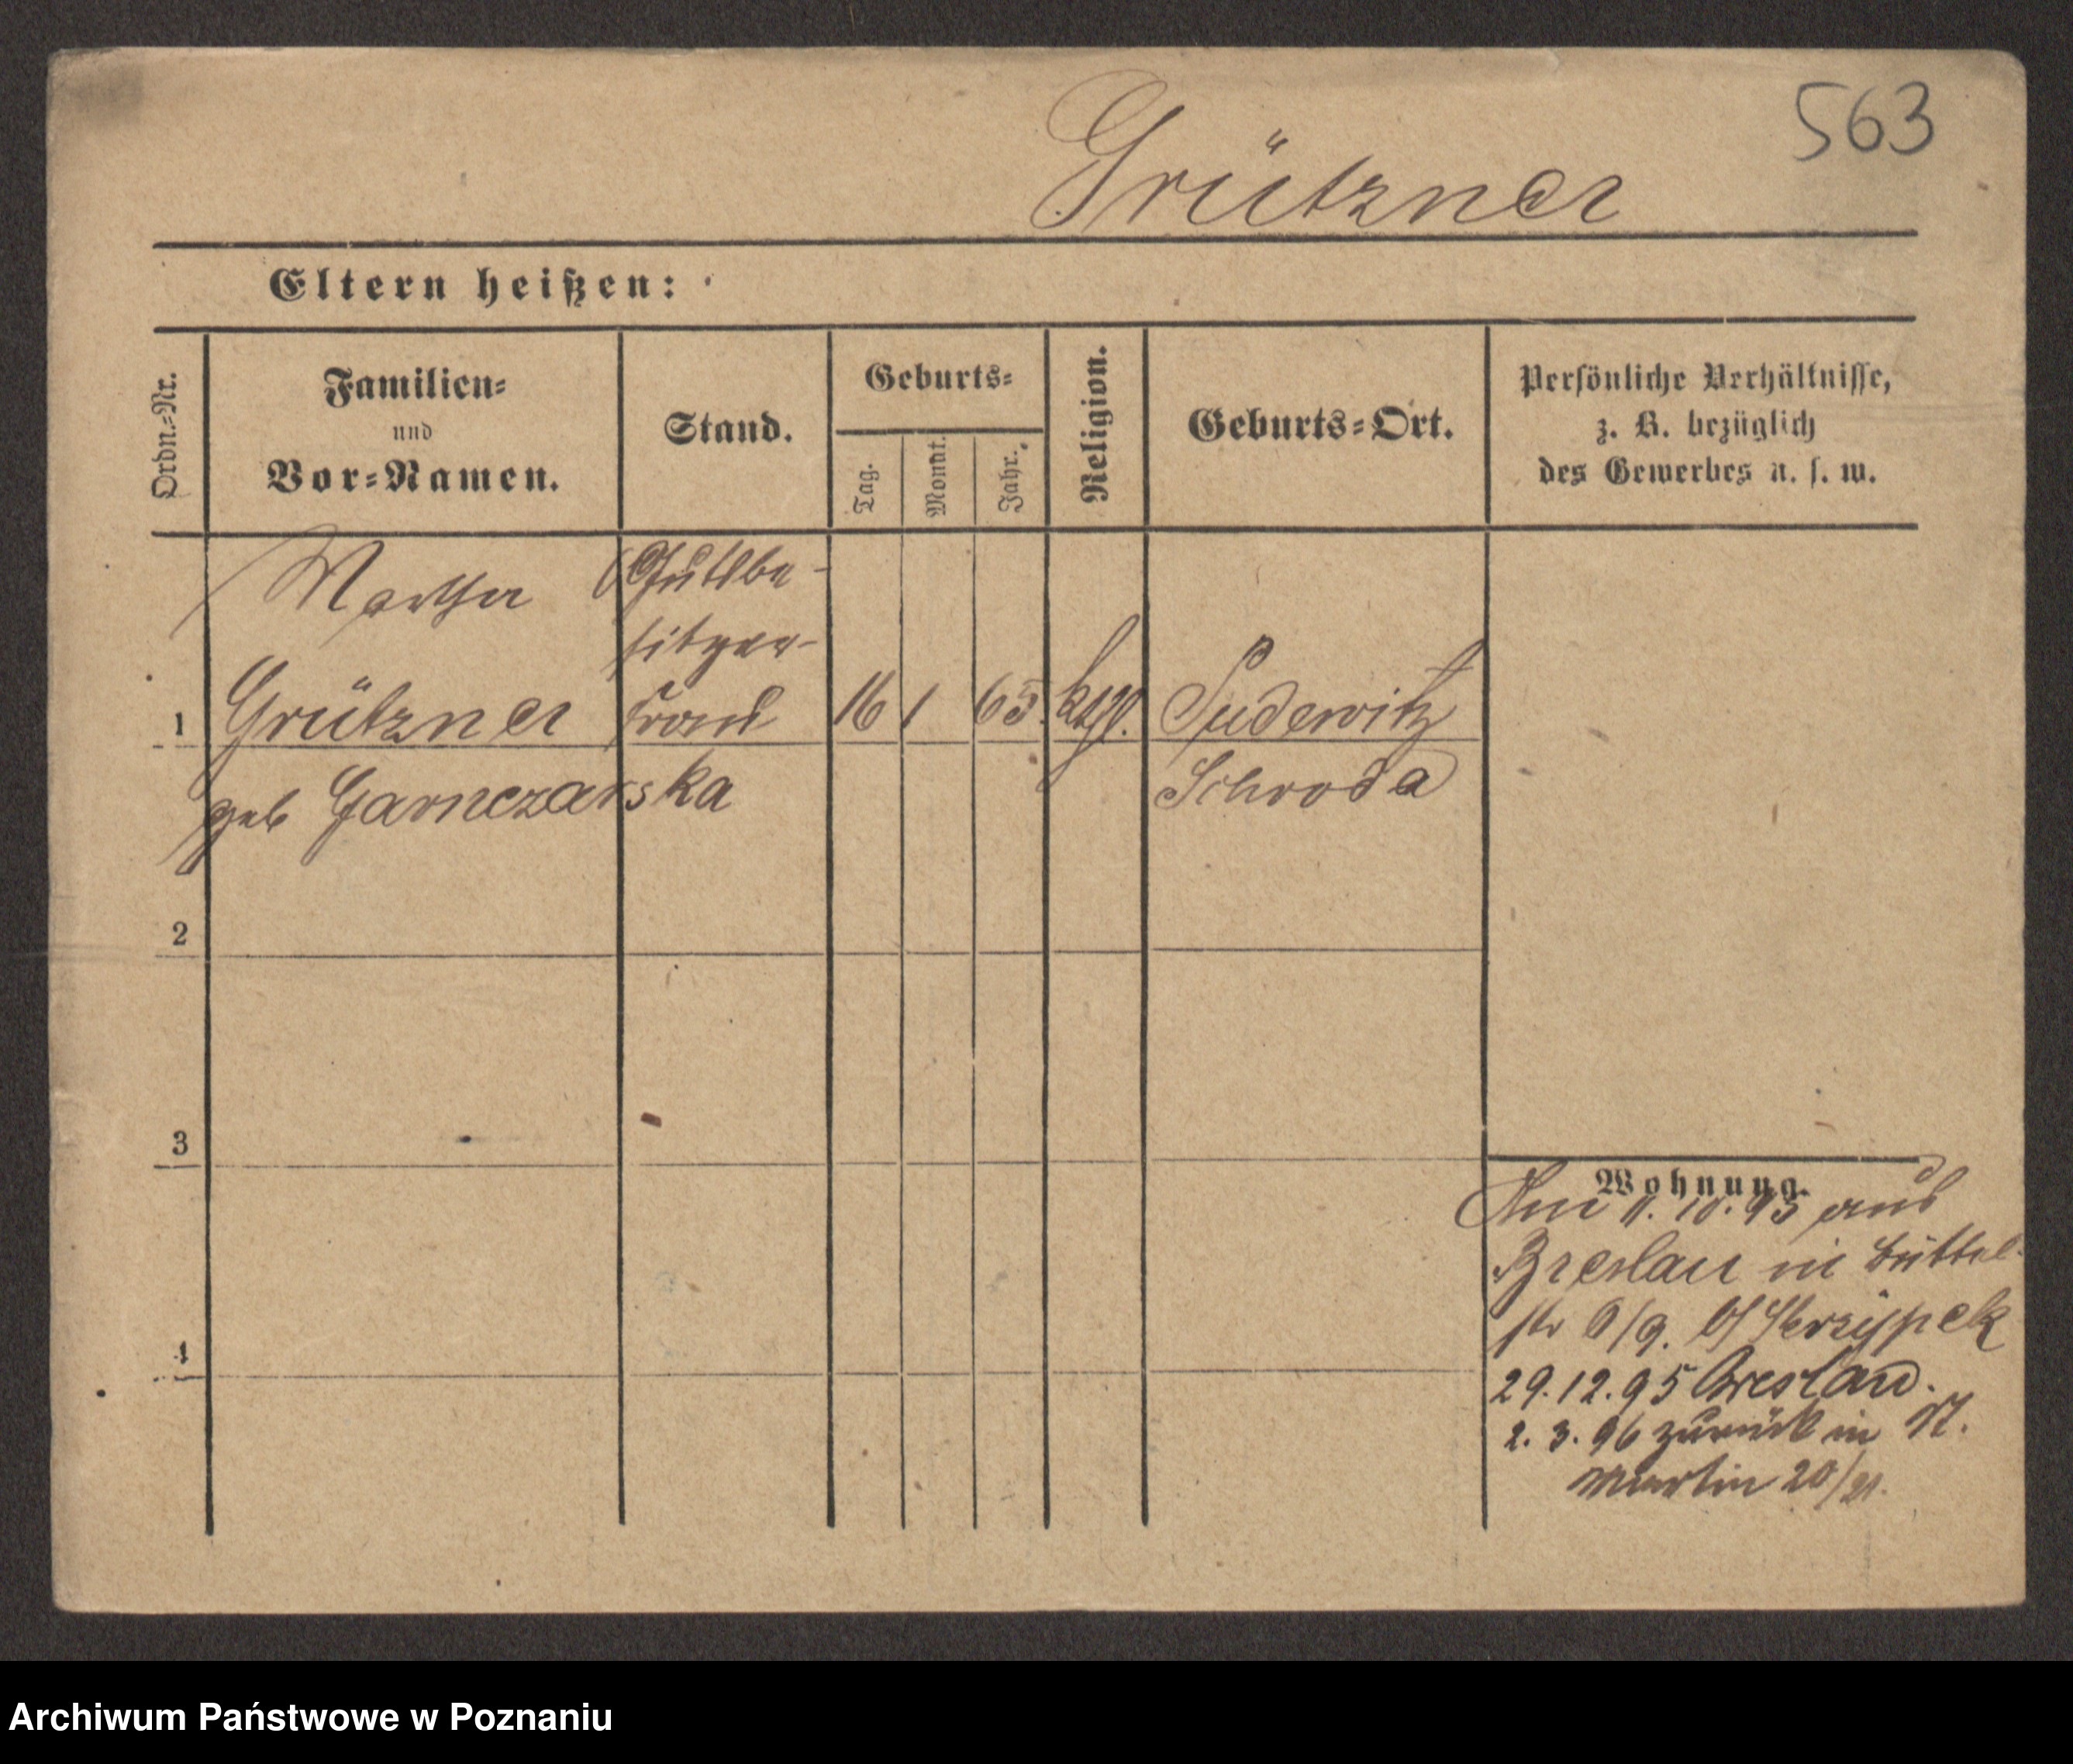 563
Grützner
Eltern heißen:
Ordn.=Nr.
Familien=
und
Vor=Namen.
Stand.
Geburts=
Tag.
Monat.
Jahr.
Religion.
Geburts=Ort.
Persönliche Verhältnisse,
z. B. bezüglich
des Gewerbes u. s. w.
Martha
Gutsbe-
sitzer-
1 Grützner frau 16 1 65. kthl. Pudewitz
geb Garnczarska Schroda
2
3
4
Wohnung.
Am 11. 10. 95 aus
Breslau in Büttel-
str 8/9. b/ Skrzypek
29.12.95 Breslau.
2. 3. 96 zurück in St.
Martin 20/21.
Archiwum Państwowe w Poznaniu